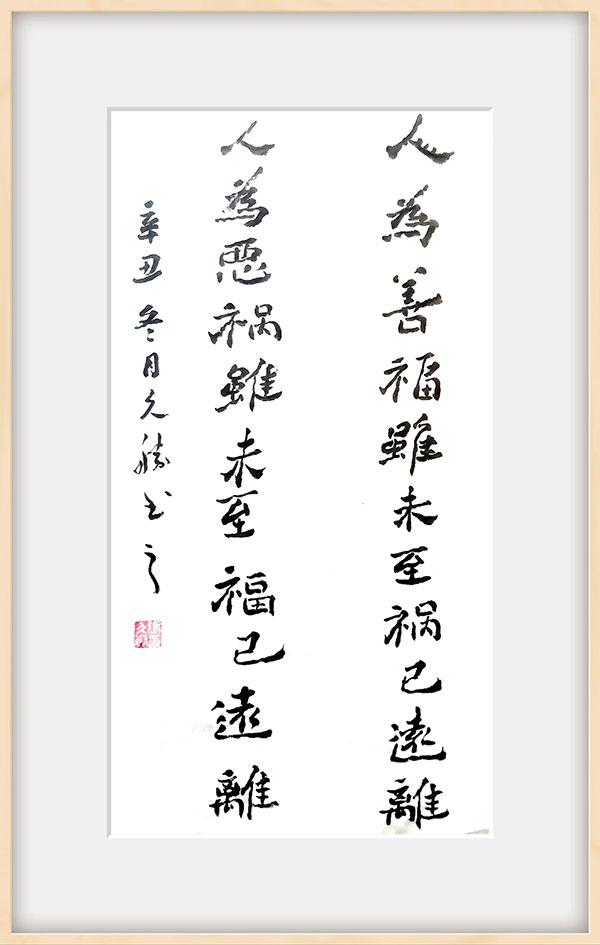 人為善福雖未至祸已遠離
人為惡祸雖未至福已遠離
辛丑冬月久勝书之